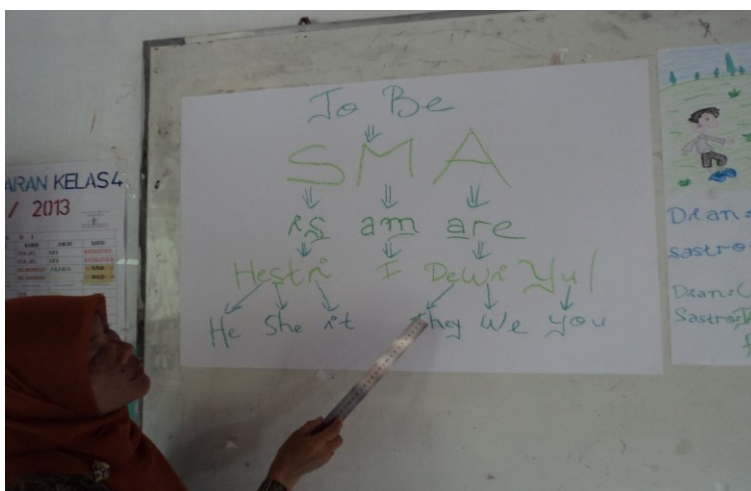 To Be
SMA
is am are
Hestri I Dewi Yul
He She it They We you
ARAN KELAS 4
/ 2013
Dian
sastro
Dian
Sastro